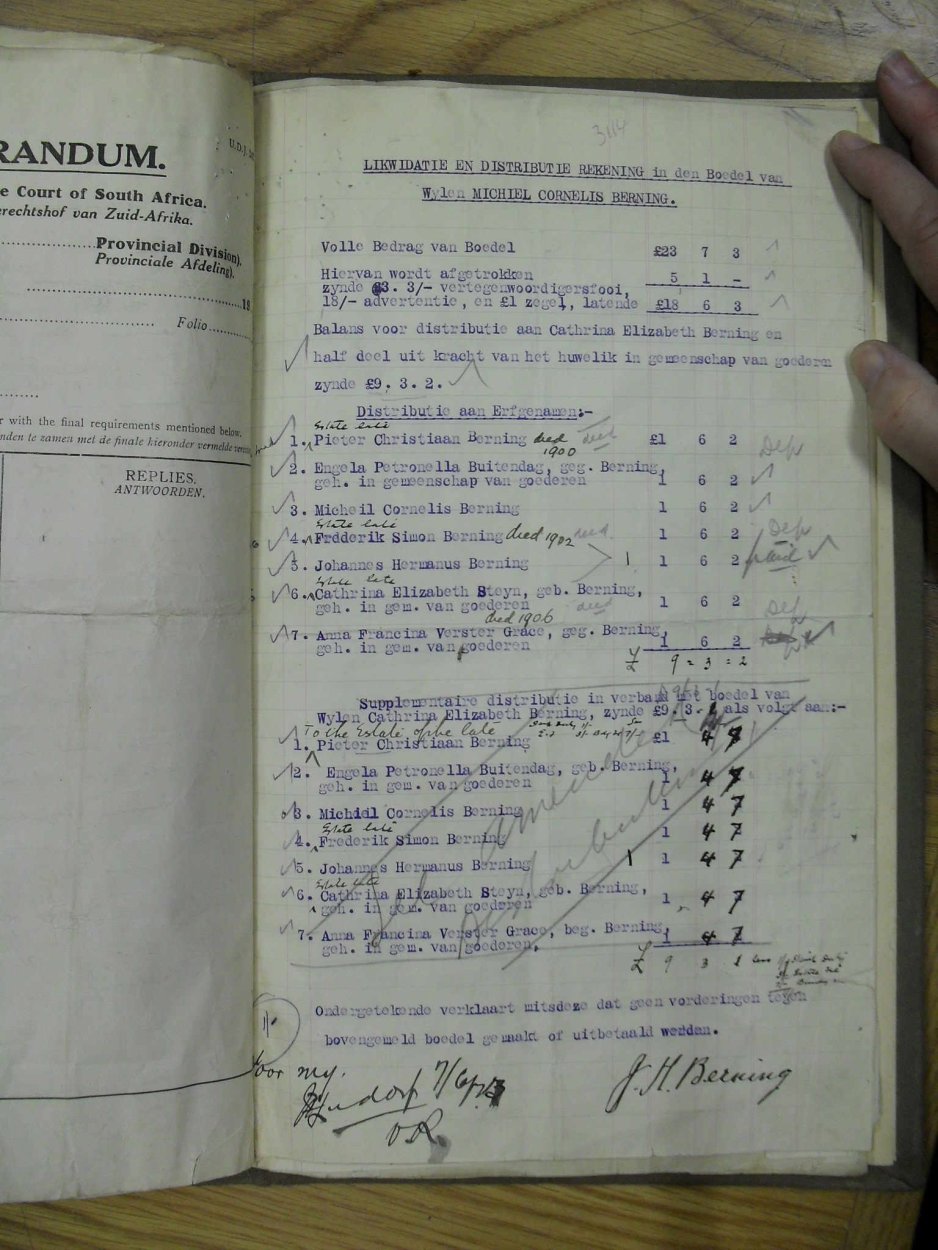 RANDUM.
e Court of South Africa.
erechtshof van Zuid-Afrika.
Provincial Division).
Provinciale Afdeling).
18
Folio
r with the final requirements mentioned below.
nden te zamen met de finale hieronder vermelde
REPLIES.
ANTWOORDEN.
U.D.J.
3114
LIKWIDATIE EN DISTRIBUTIE REKENING in den Boedel van
Wylen MICHIEL CORNELIS BERNING.
Volle Bedrag van Boedel £23 7 3
Hiervan wordt afgetrokken 5 1 -
zynde £3. 3/- vertegenwoordigersfooi,
18/- advertentie, en £1 zegel, latende £18 6 3
Balans voor distributie aan Cathrina Elizabeth Berning en
half deel uit kracht van het huwelik in gemeenschap van goederen
zynde £9. 3. 2.
Distributie aan Erfgenamen:-
Estate late
1. Pieter Christiaan Berning died died £1 6 2 Dep
1900
2. Engela Petronella Buitendag, geg. Berning,
geh. in gemeenschap van goederen 1 6 2
3. Micheil Cornelis Berning 1 6 2
Estate late
4. Frdderik Simon Berning died 1902 died. 1 6 2 Dep
5. Johannes Hermanus Berning 1 1 6 2 paid
Estate late
6. Cathrina Elizabeth Steyn, geb. Berning,
geh. in gem. van goederen died 1 6 2 Dep
died 1906
7. Anna Francina Verster Grace, geg. Berning,
geh. in gem. van goederen 1 6 2
£ 9 = 3 = 2
Supplementaire distributie in verband met boedel van
Wylen Cathrina Elizabeth Berning, zynde £9. 3. 1 als volgt aan:-
To the Estate of the late
1. Pieter Christiaan Berning £1 4 7
2. Engela Petronella Buitendag, geb. Berning,
geh. in gem. van goederen 1 4 7
3. Michiel Cornelis Berning 1 4 7
Estate late
4. Frederik Simon Berning 1 4 7
5. Johannes Hermanus Berning 1 1 4 7
Estate late
6. Cathrina Elizabeth Steyn, geb. Berning,
geh. in gem. van goederen 1 4 7
7. Anna Francina Verster Grace, beg. Berning,
geh. in gem. van goederen. 1 4 7
£ 9 3 1 less
Ondergetekende verklaart mitsdeze dat geen vorderingen tegen
bovengemeld boedel gemaakt of uitbetaald werdan.
Voor my.
J.H. Berning